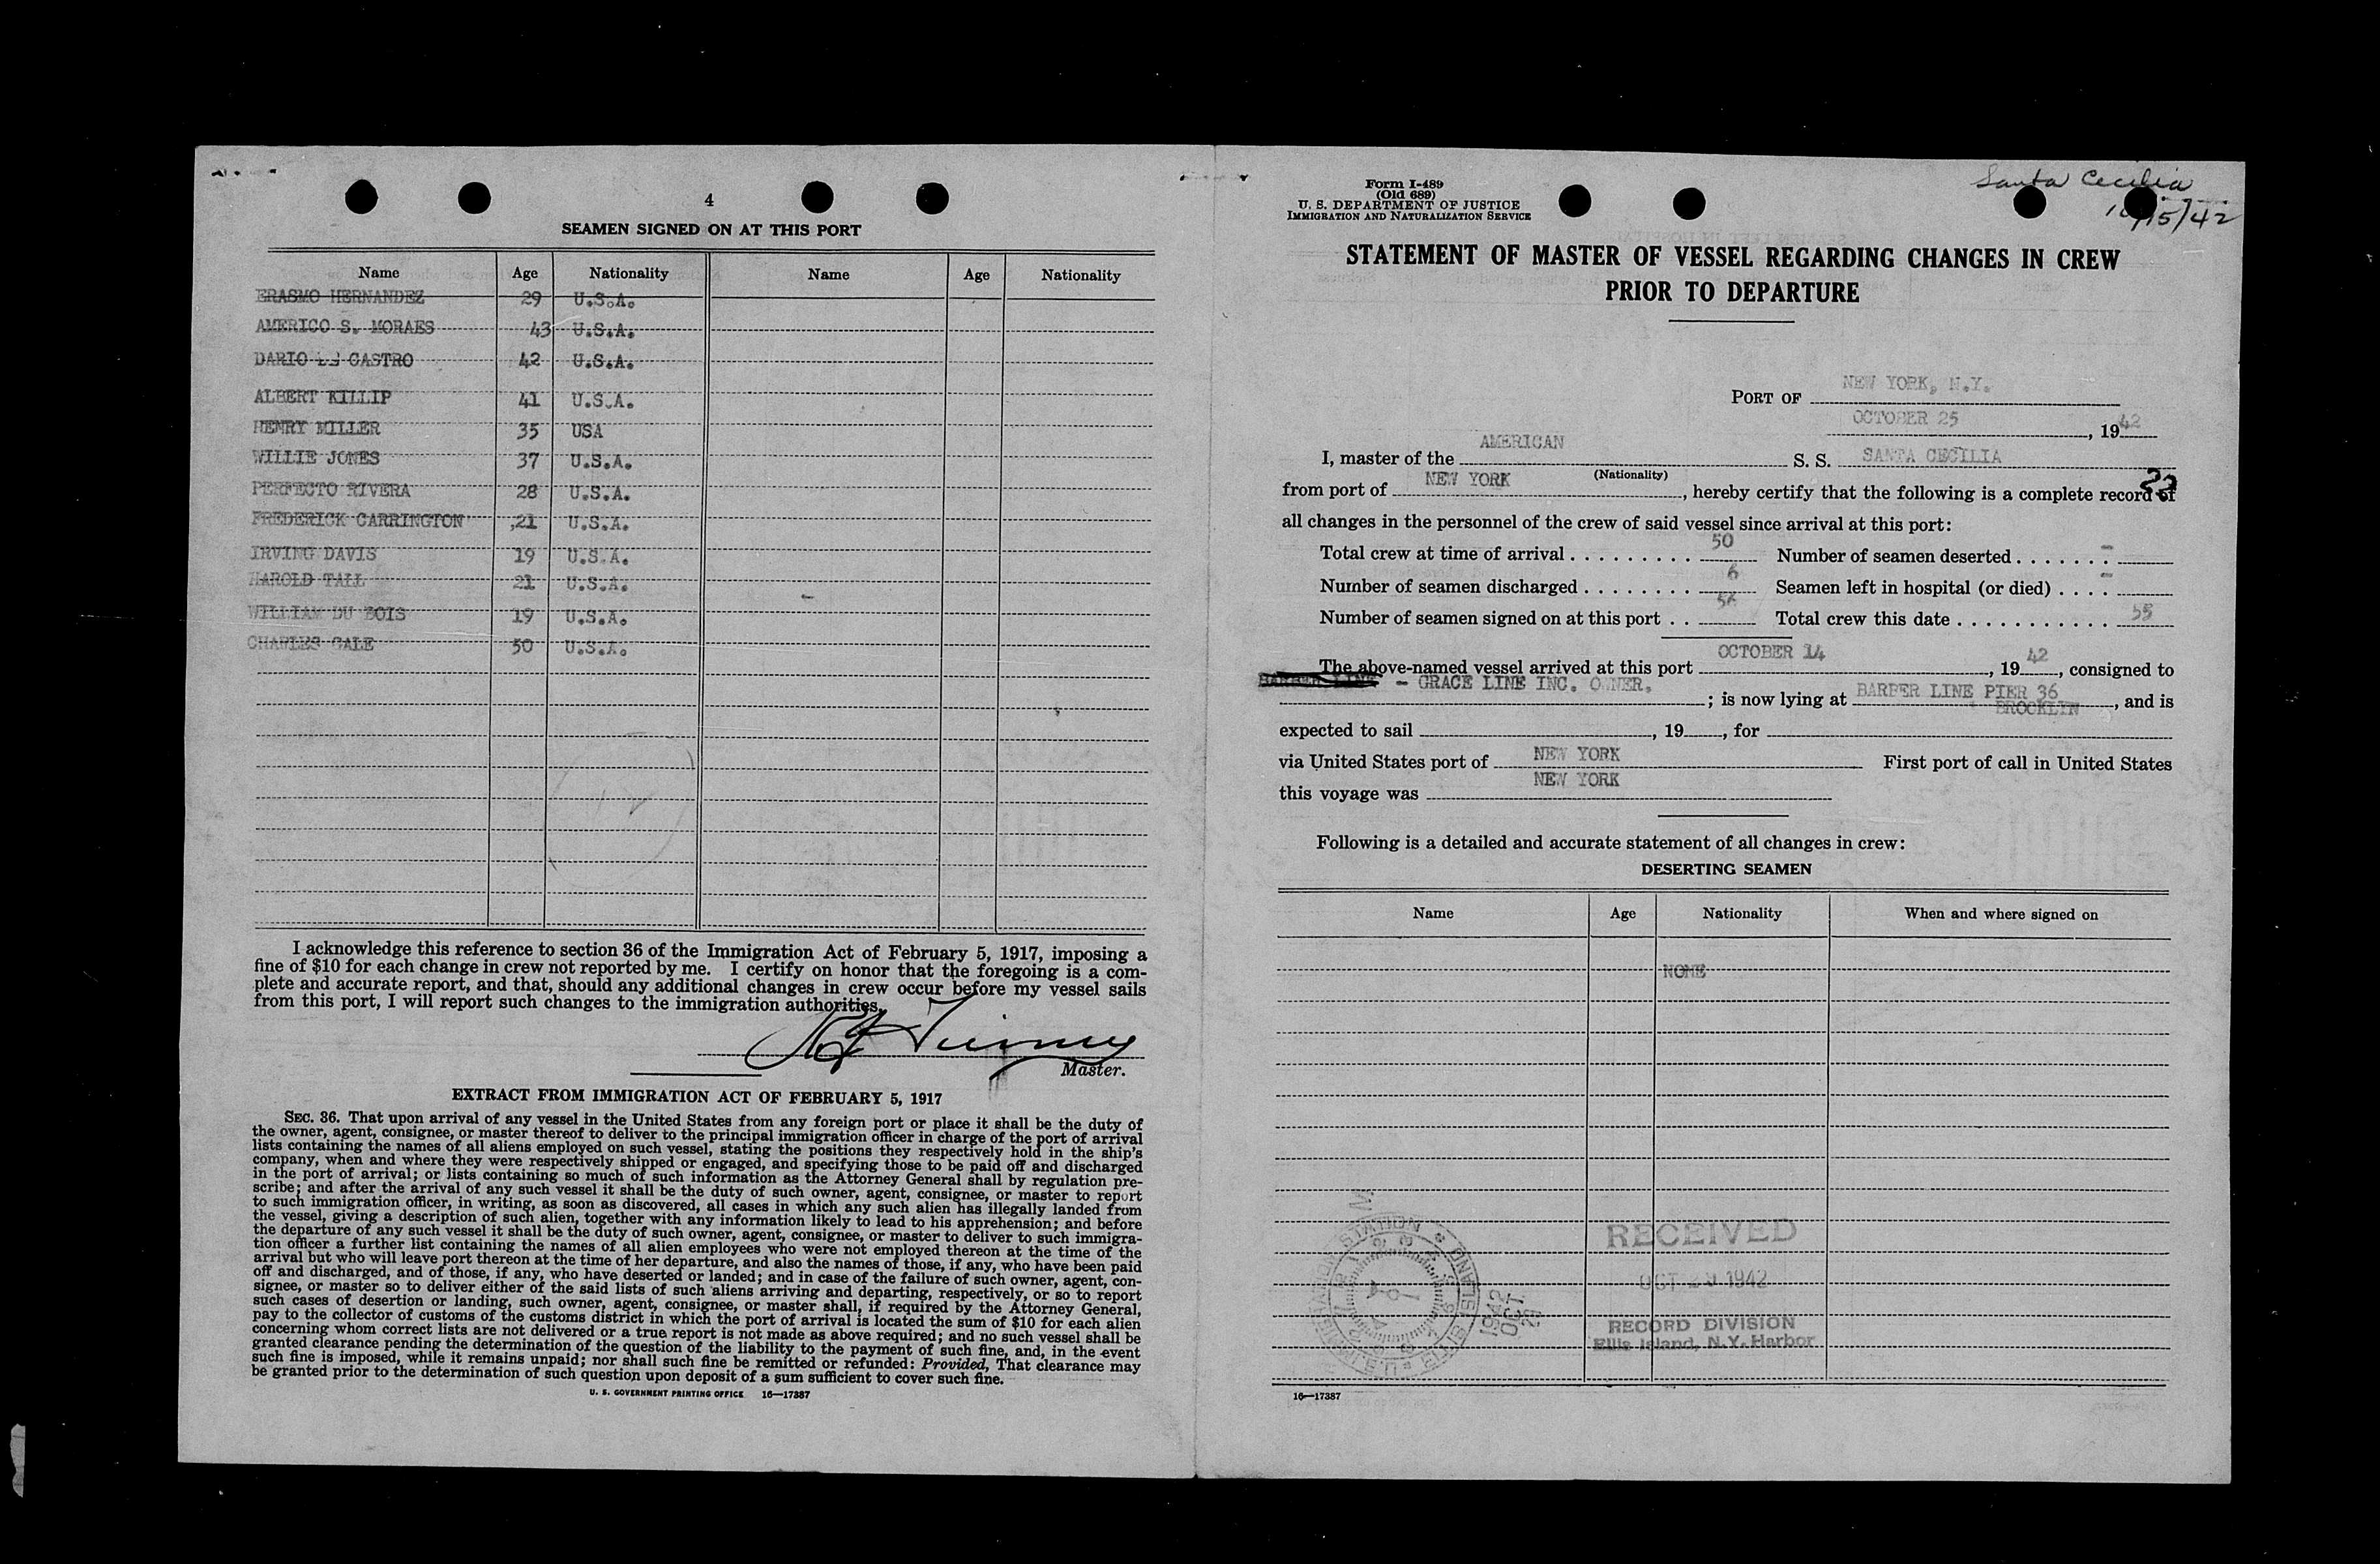 4
SEAMEN SIGNED ON AT THIS PORT
Name Age Nationality Name Age Nationality
ERASMO HERNANDEZ 29 U.S.A.
AMERICO S. MORAES 43 U.S.A.
DARIO DE CASTRO 42 U.S.A.
ALBERT KILLIP 41 U.S.A.
HENRY MILLER 35 USA
WILLIE JONES 37 U.S.A.
PERFECTO RIVERA 28 U.S.A.
FREDERICK CARRINGTON 21 U.S.A.
IRVING DAVIS 19 U.S.A.
HAROLD TALL 21 U.S.A.
WILLIAM DU BOIS 19 U.S.A.
CHARLES GALE 50 U.S.A.
I acknowledge this reference to section 36 of the Immigration Act of February 5, 1917, imposing a
fine of $10 for each change in crew not reported by me. I certify on honor that the foregoing is a com-
plete and accurate report, and that, should any additional changes in crew occur before my vessel sails
from this port, I will report such changes to the immigration authorities.
Master.
EXTRACT FROM IMMIGRATION ACT OF FEBRUARY 5, 1917
SEC. 36. That upon arrival of any vessel in the United States from any foreign port or place it shall be the duty of
the owner, agent, consignee, or master thereof to deliver to the principal immigration officer in charge of the port of arrival
lists containing the names of all aliens employed on such vessel, stating the positions they respectively hold in the ship's
company, when and where they were respectively shipped or engaged, and specifying those to be paid off and discharged
in the port of arrival; or lists containing so much of such information as the Attorney General shall by regulation pre-
scribe; and after the arrival of any such vessel it shall be the duty of such owner, agent, consignee, or master to report
to such immigration officer, in writing, as soon as discovered, all cases in which any such alien has illegally landed from
the vessel, giving a description of such alien, together with any information likely to lead to his apprehension; and before
the departure of any such vessel it shall be the duty of such owner, agent, consignee, or master to deliver to such immigra-
tion officer a further list containing the names of all alien employees who were not employed thereon at the time of the
arrival but who will leave port thereon at the time of her departure, and also the names of those, if any, who have been paid
off and discharged, and of those, if any, who have deserted or landed; and in case of the failure of such owner, agent, con-
signee, or master so to deliver either of the said lists of such aliens arriving and departing, respectively, or so to report
such cases of desertion or landing, such owner, agent, consignee, or master shall, if required by the Attorney General,
pay to the collector of customs of the customs district in which the port of arrival is located the sum of $10 for each alien
concerning whom correct lists are not delivered or a true report is not made as above required; and no such vessel shall be
granted clearance pending the determination of the question of the liability to the payment of such fine, and, in the event
such fine is imposed, while it remains unpaid; nor shall such fine be remitted or refunded: Provided, That clearance may
be granted prior to the determination of such question upon deposit of a sum sufficient to cover such fine.
U. S. GOVERNMENT PRINTING OFFICE 16—17387
Form I-489
(Old 689)
U. S. DEPARTMENT OF JUSTICE
IMMIGRATION AND NATURALIZATION SERVICE
Santa Cecilia
10/15/42
STATEMENT OF MASTER OF VESSEL REGARDING CHANGES IN CREW
PRIOR TO DEPARTURE
PORT OF NEW YORK, N.Y.
OCTOBER 25, 1942
I, master of the AMERICAN S. S. SANTA CECILIA
(Nationality)
from port of NEW YORK, hereby certify that the following is a complete record of
all changes in the personnel of the crew of said vessel since arrival at this port:
Total crew at time of arrival . . . . . . . . . 50 Number of seamen deserted . . . . . . . -
Number of seamen discharged . . . . . . . . 6 Seamen left in hospital (or died) . . . . -
Number of seamen signed on at this port . . Total crew this date . . . . . . . . . . . .
The above-named vessel arrived at this port OCTOBER 14, 1942, consigned to
BARBER LINE - GRACE LINE INC. OWNER. ; is now lying at BARBER LINE PIER 36 BROOKLYN, and is
expected to sail , 19 , for
via United States port of NEW YORK First port of call in United States
this voyage was NEW YORK
Following is a detailed and accurate statement of all changes in crew:
DESERTING SEAMEN
Name Age Nationality When and where signed on
NONE
RECEIVED
OCT 1942
RECORD DIVISION
Ellis Island, N.Y. Harbor
1942
OCT.
29
16—17387